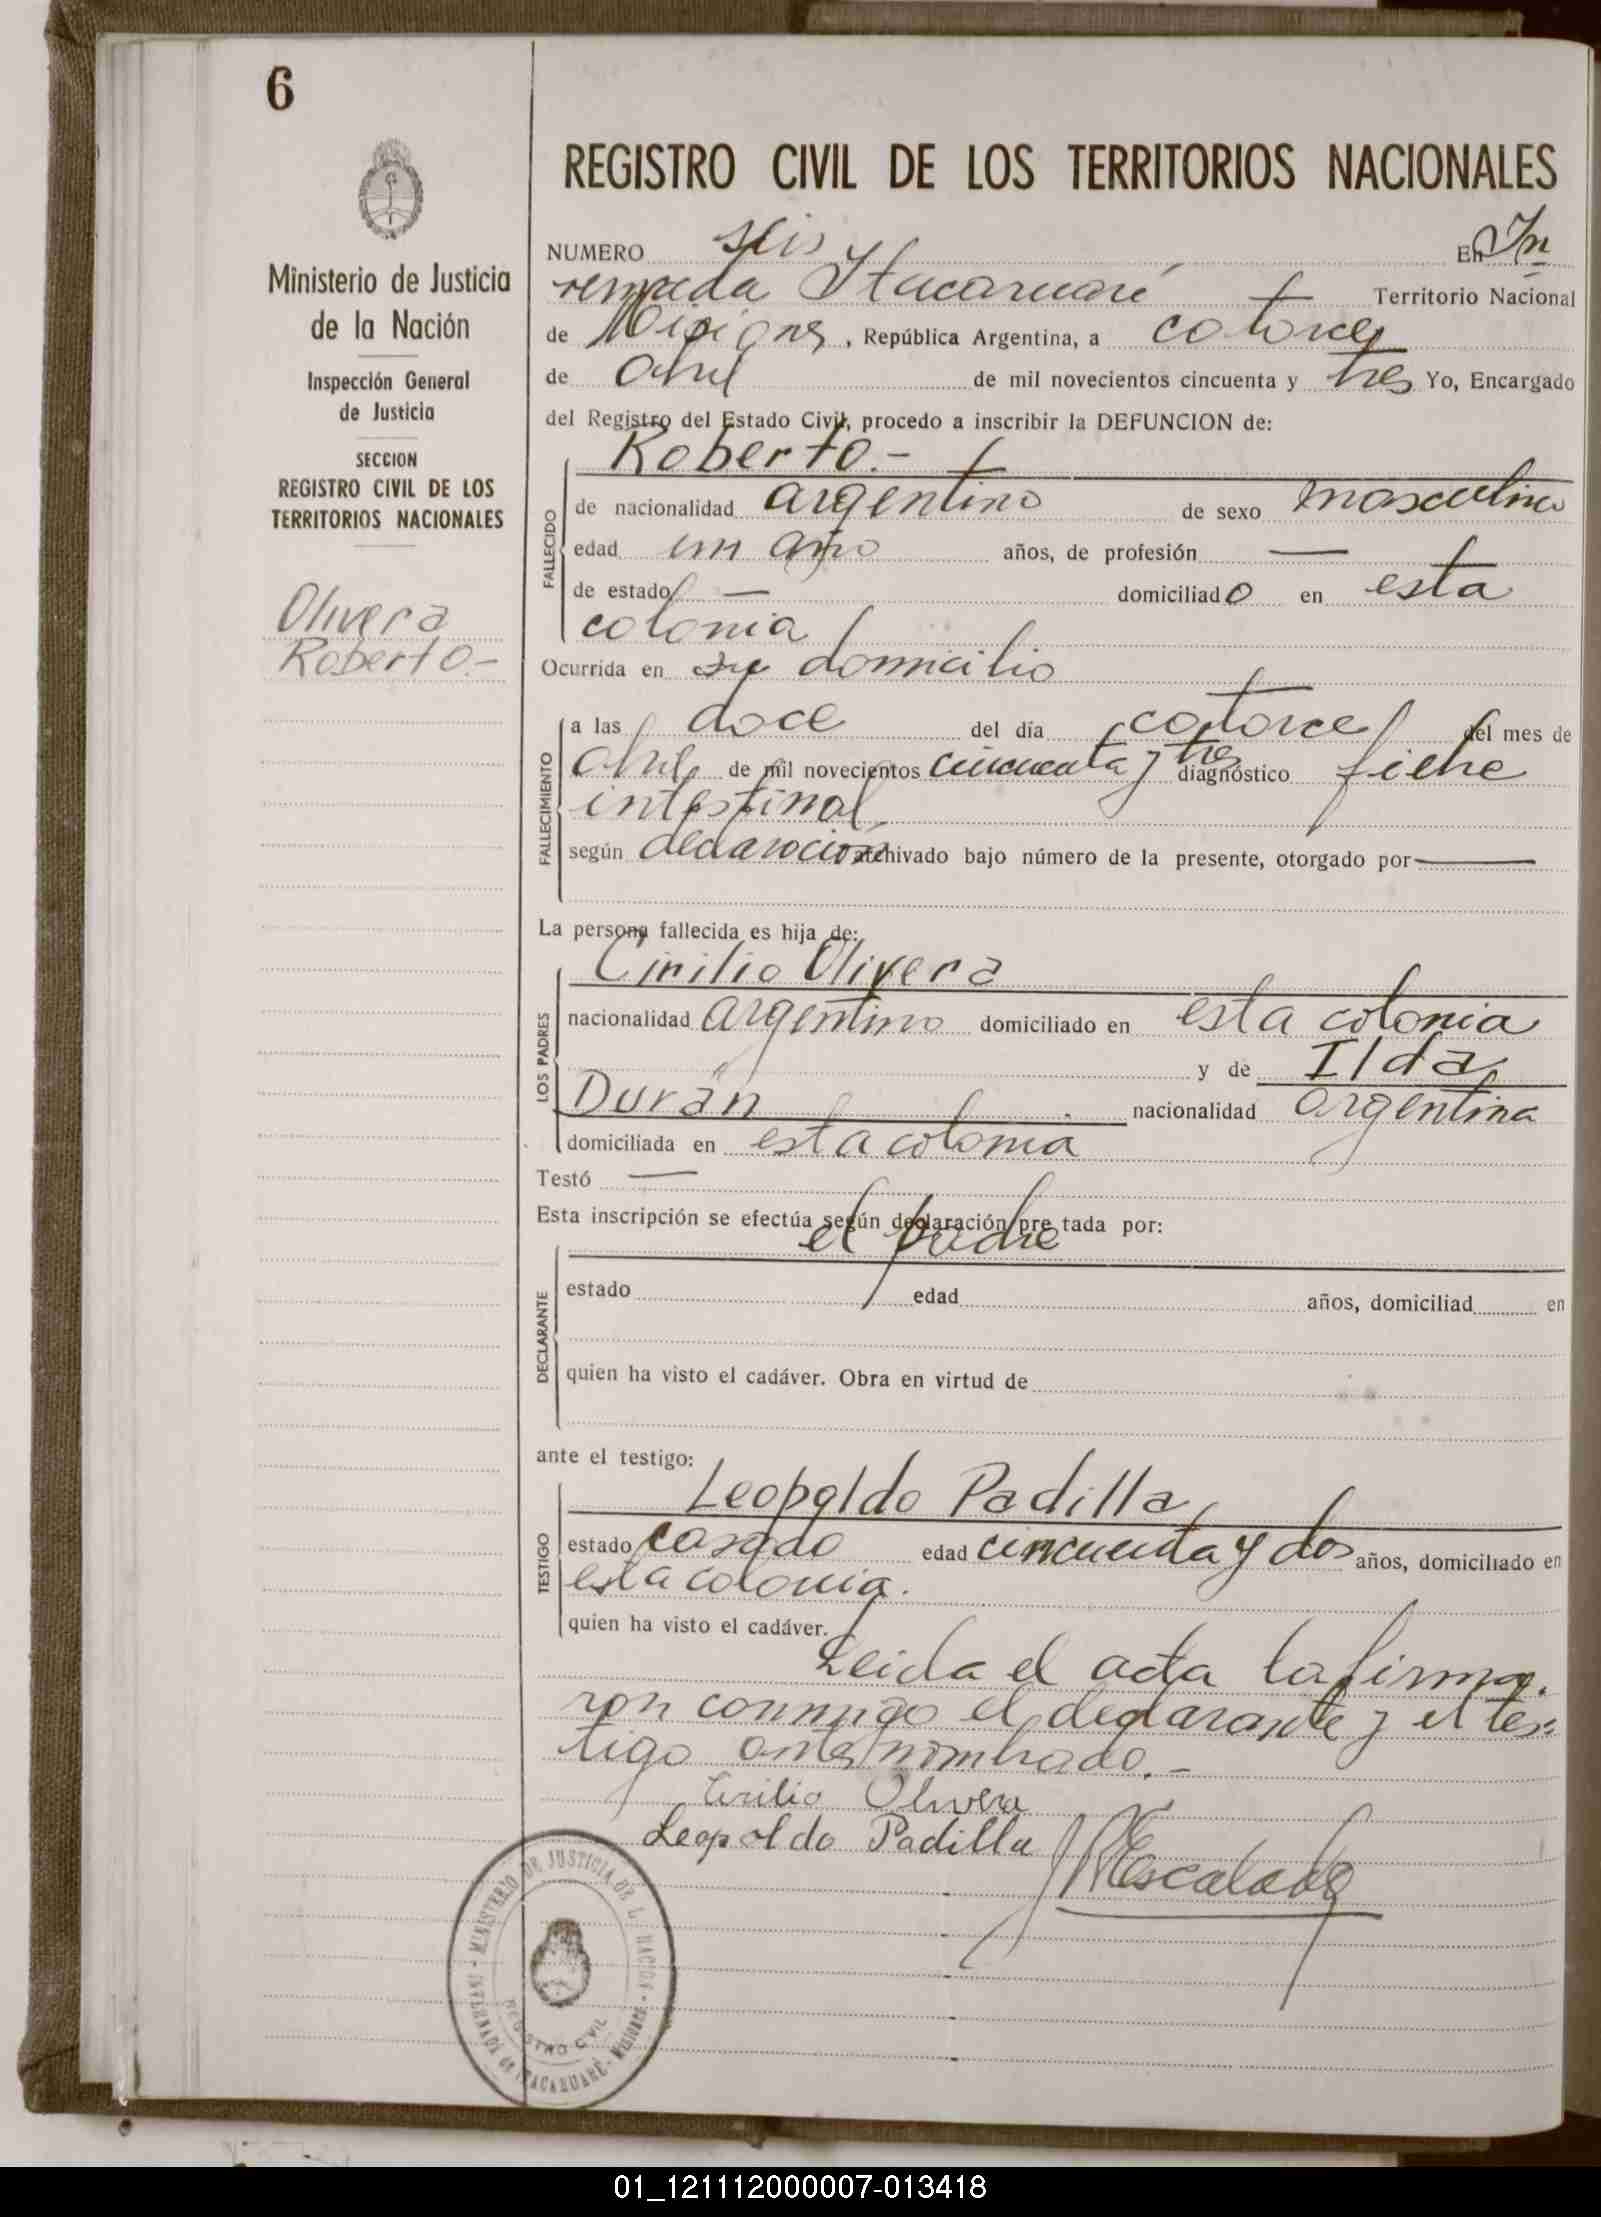 6
Ministerio de Justicia
de la Nación
Inspección General
de Justicia
SECCION
REGISTRO CIVIL DE LOS
TERRITORIOS NACIONALES
Olivera
Roberto.-
REGISTRO CIVIL DE LOS TERRITORIOS NACIONALES
NUMERO seis En In
ternada Itacaruaré Territorio Nacional
de Misiones, República Argentina, a catorce
de abril de mil novecientos cincuenta y tres Yo, Encargado
del Registro del Estado Civil, procedo a inscribir la DEFUNCION de:
Roberto.-
FALLECIDO
de nacionalidad argentino de sexo masculino
edad un año años, de profesión —
de estado — domiciliado en esta
colonia
Ocurrida en su domicilio
FALLECIMIENTO
a las doce del día catorce del mes de
abril de mil novecientos cincuenta y tres diagnóstico fiebre
intestinal
según declaración archivado bajo número de la presente, otorgado por —
La persona fallecida es hija de:
Cirilio Olivera
LOS PADRES
nacionalidad argentino domiciliado en esta colonia
y de Ilda
Durán nacionalidad argentina
domiciliada en esta colonia
Testó —
Esta inscripción se efectúa según declaración pre tada por:
el padre
DECLARANTE
estado edad años, domiciliad en
quien ha visto el cadáver. Obra en virtud de
ante el testigo:
Leopoldo Padilla
TESTIGO
estado casado edad cincuenta y dos años, domiciliado en
esta colonia.
quien ha visto el cadáver.
Leida el acta la firma.
ron conmigo el declarante y el tes-
tigo antes nombrado.-
Cirilio Olivera
Leopoldo Padilla
Escalada
MINISTERIO DE JUSTICIA DE L. NACION
REGISTRO CIVIL
ITACARUARÉ - MISIONES
01_121112000007-013418